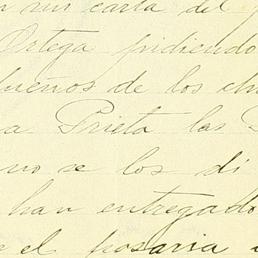 un mi carta del
Ortega pidiendo
dueños de los ch
a Prieta las
no se los di
han entregado
e el posaria